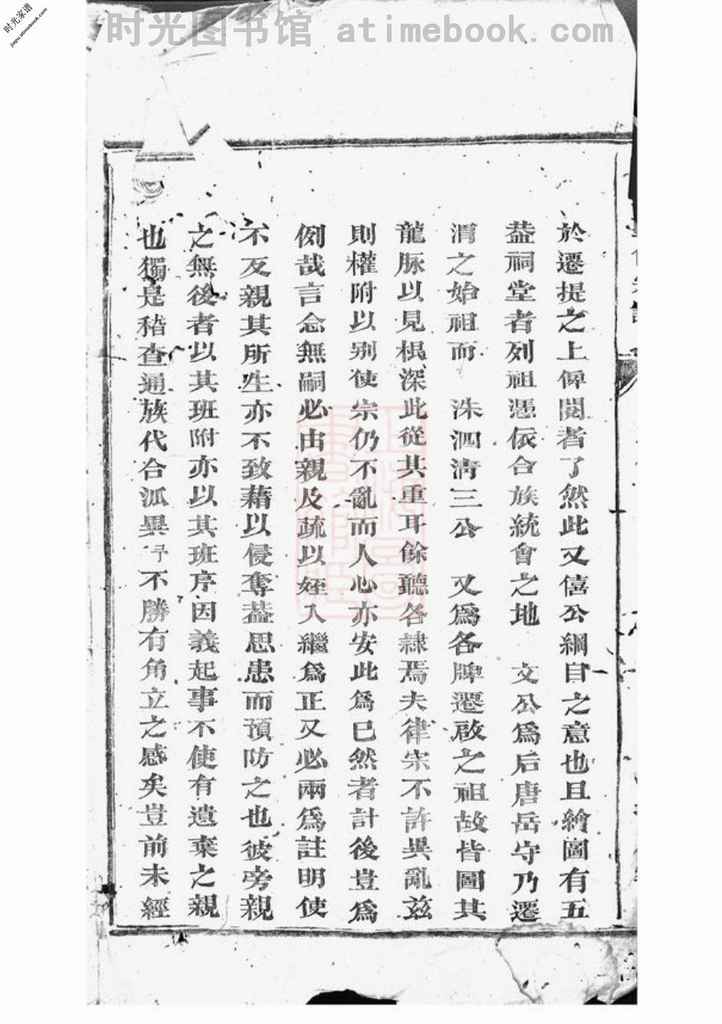 时光图书馆 atimebook.com
时光家谱
jiapu.atimebook.com
於遷提之上俾閱者了然此又僖公綱目之意也且繪圖有五
葢祠堂者列祖憑依合族統會之地 文公為后唐岳守乃遷
渭之始祖而 洙泗淸三公 又為各牌遷啟之祖故皆圖其
龍脉以見根深此從其重耳餘聽各隷焉夫律宗不許異亂茲
則權附以别使宗仍不亂而人心亦安此為已然者計後豈為
例哉言念無嗣必由親及疏以姪入繼為正又必兩為註明使
不反親其所生亦不致藉以侵奪葢思患而預防之也彼旁親
之無後者以其班附亦以其班序因義起事不使有遺棄之親
也獨是稽查通族代合派異 不勝有角立之感矣豈前未經